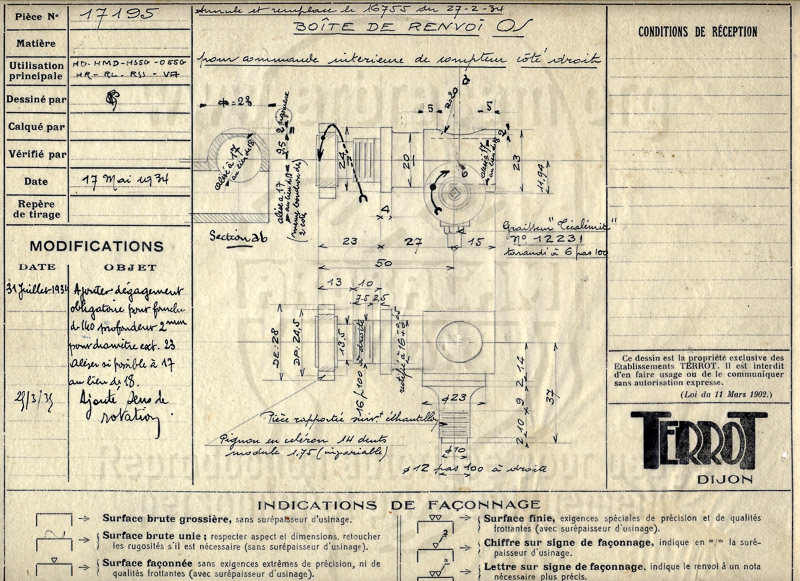 Pièce No 17195
Matière
Utilisation principale HD-HMD-HSSG-OSSG
HR-RL-RSS-VA
Dessiné par
Calqué par
Vérifié par
Date 17 Mai 1934
Repère de tirage
MODIFICATIONS
DATE OBJET
31 Juillet 1934 Ajouter dégagement
obligatoire pour
de 140 profondeur 2mm
pour diamètre ext. 23
Aléser si possible à 17
au lieu de 18.
Ajouté sens de
rotation
Annule et remplace le 16755 du 27-2-34
BOÎTE DE RENVOI OS
pour commande intérieure de compteur côté droit
CONDITIONS DE RÉCEPTION
φ=28
alésé à 17
au lieu de 18
Section ab
9,5
alésé à 17
au lieu de 18
5
R=20
5
2
24
20
23
11,94
alésé à 17
au lieu de 18
4
23
27
15
50
Graisseur "Técalémit"
No 12231
taraudé à 6 pas 100
13
10
7.5
2.5
DE:28
DP:24,5
13,5
16 p 100 à droite
rectifié à 16
φ23
14
2
9
10
2
37
φ10
Pièce rapportée suivt échantillon
Pignon en céloron 14 dents
module 1,75 (invariable)
φ 12 pas 100 à droite
Ce dessin est la propriété exclusive des
Etablissements TERROT. Il est interdit
d'en faire usage ou de le communiquer
sans autorisation expresse.
(Loi du 11 Mars 1902.)
TERROT
DIJON
INDICATIONS DE FAÇONNAGE
Surface brute grossière, sans surépaisseur d'usinage.
Surface brute unie ; respecter aspect et dimensions, retoucher
les rugosités s'il est nécessaire (sans surépaisseur d'usinage).
Surface façonnée sans exigences extrêmes de précision, ni de
qualités frottantes (avec surépaisseur d'usinage).
Surface finie, exigences spéciales de précision et de qualités
frottantes (avec surépaisseur d'usinage).
Chiffre sur signe de façonnage, indique en "/" la suré-
paisseur d'usinage.
Lettre sur signe de façonnage, indique le renvoi à un nota
nécessaire plus précis.